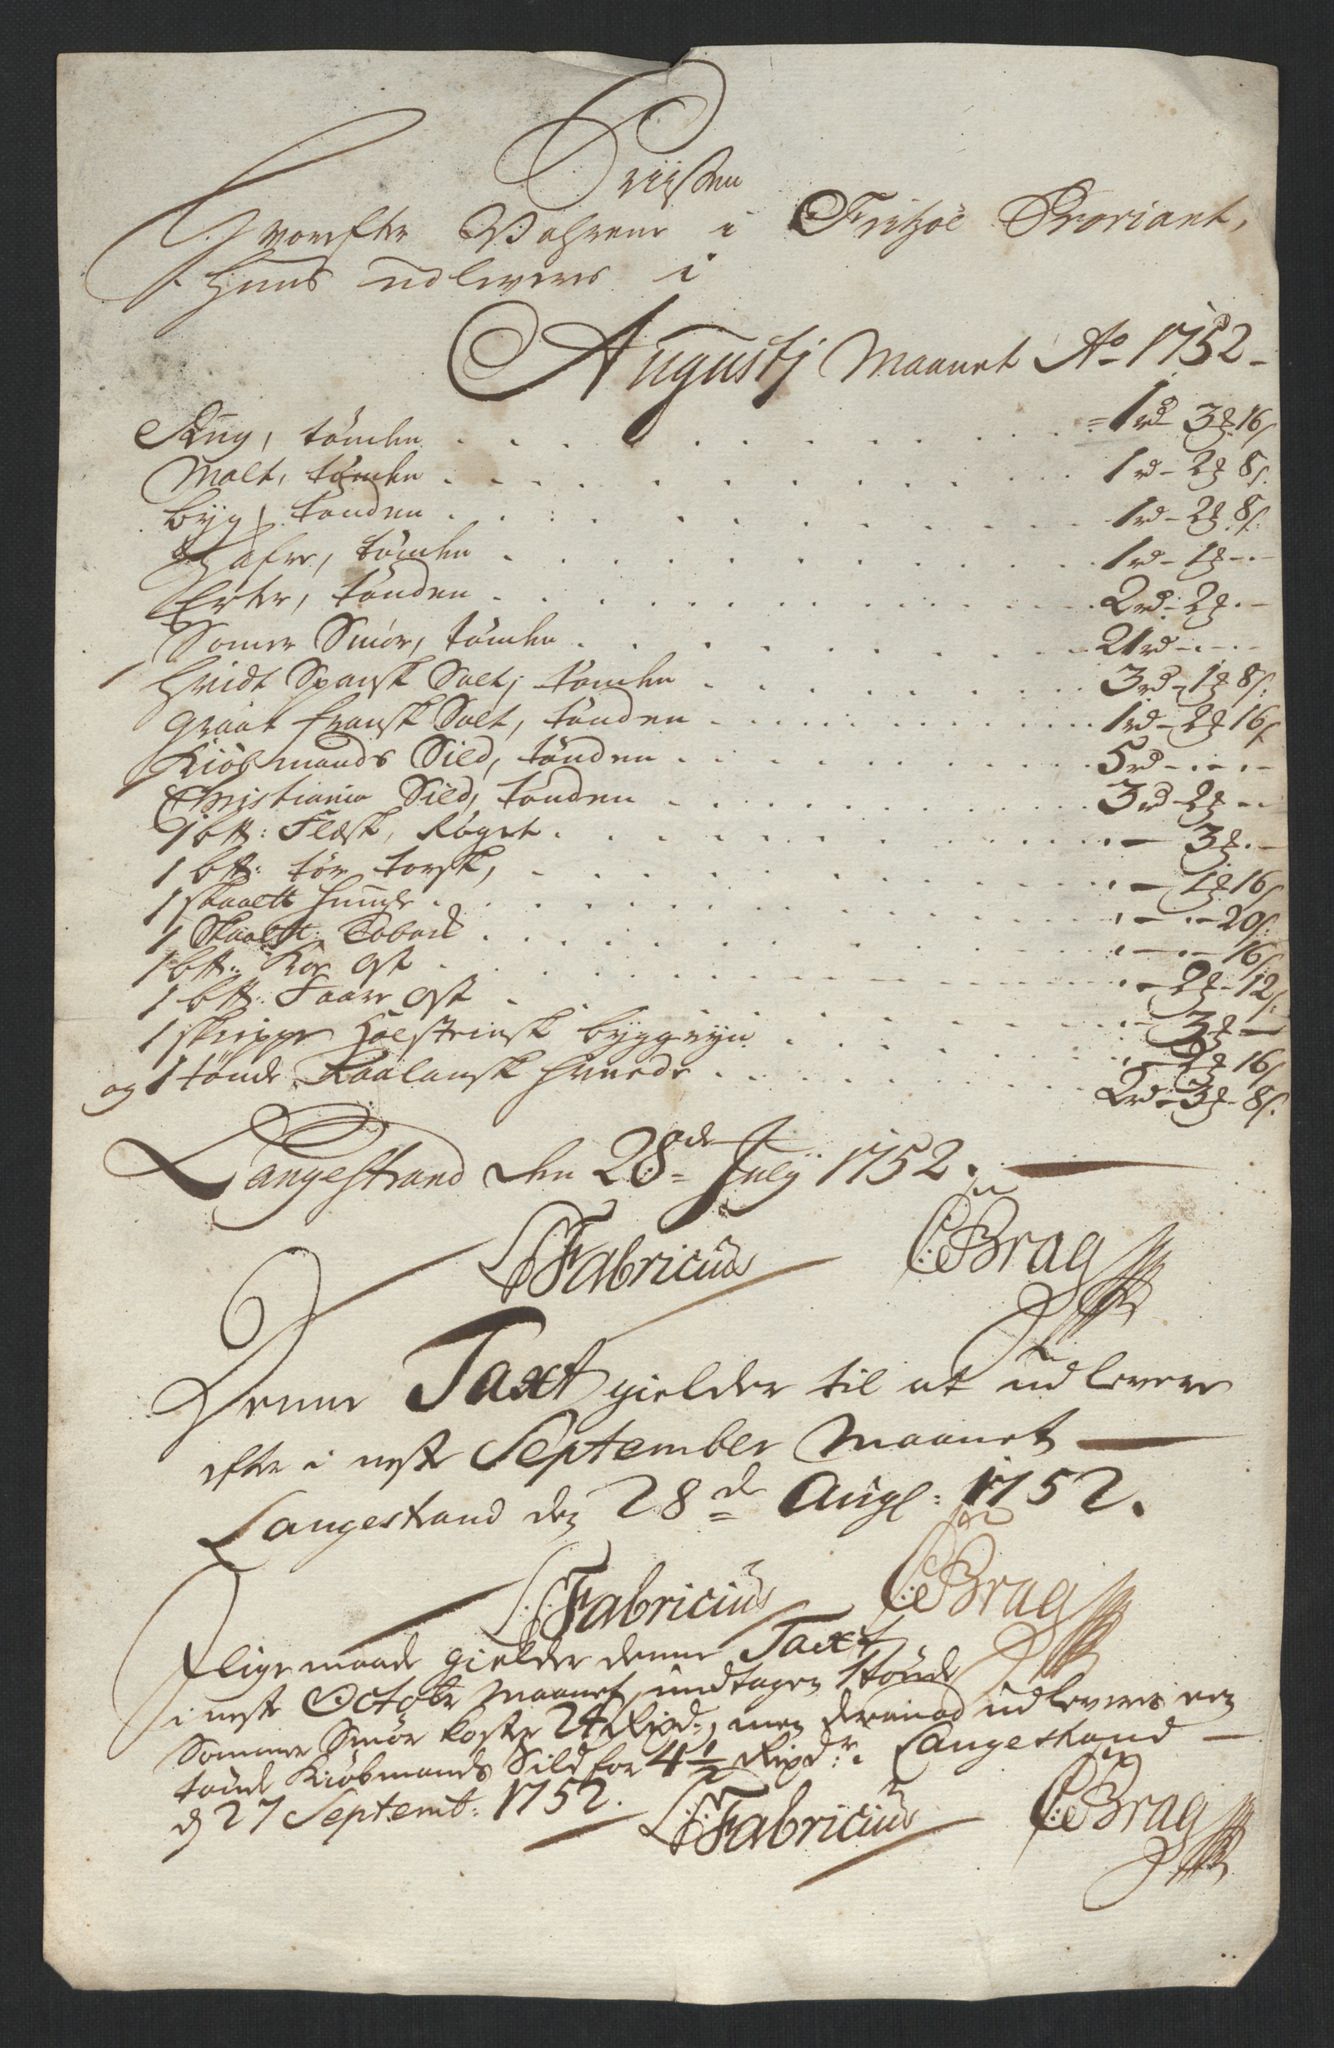 Priisen
Hvorefter Vahrene i Fritzøe Proviant,
Huus udleveres i
Augustj Maanet Ao 1752
Rug, tønden = 1 rd - 3 ℳ 16 s
Malt, tønden 1 rd - 2 ℳ 8 s:
Byg, tønden 1 rd - 2 ℳ 8 s:
Hafre, tønden 1 rd - 1 ℳ - -
Erter, tønden 2 rd - 2 ℳ - -
Somer Smør, tønden 21 rd - - -
Hvidt Spansk Salt, tønden 3 rd - 1 ℳ 8 s:
Graat fransk Salt, tønden 1 rd - 2 ℳ 16 s
Kiøbmands Sild, tønden 5 rd - - -
Christiania Sild, tønden 3 rd - 2 ℳ - -
1 btt: Flæsk, Røget - 3 ℳ -
1 btt: tør torsk, - 1 ℳ 16 s
1 skaaltt Humle - - 20 s:
1 Skaaltt: Toback - - 16 s
1 btt: Koe Ost - 2 ℳ - 12 s:
1 btt: Faare Ost - 3 ℳ -
1 skieppe Holsteinsk byggryn - 4 ℳ 16 s
og 1 tønde Kaalansk Hvede 2 rd - 3 ℳ - 8 s:
Langestrand den 28de Julÿ 1752.
Fabricius CBrag
Denne Taxt gielder til at udlevere
efter i neste September Maanet
Langestrand den 28de Augs: 1752.
Fabricius CBrag
I lige maade gielder denne Taxt
i neste Octobr Maanet, undtagen 1 tønde
Sommer Smør koster 24 Rixd:, men derimod udleveres een
tønde Kiøbmands Sild for 4 1/2 Rixdr: Langestrand
d 27 Septembr: 1752.
Fabricius CBrag